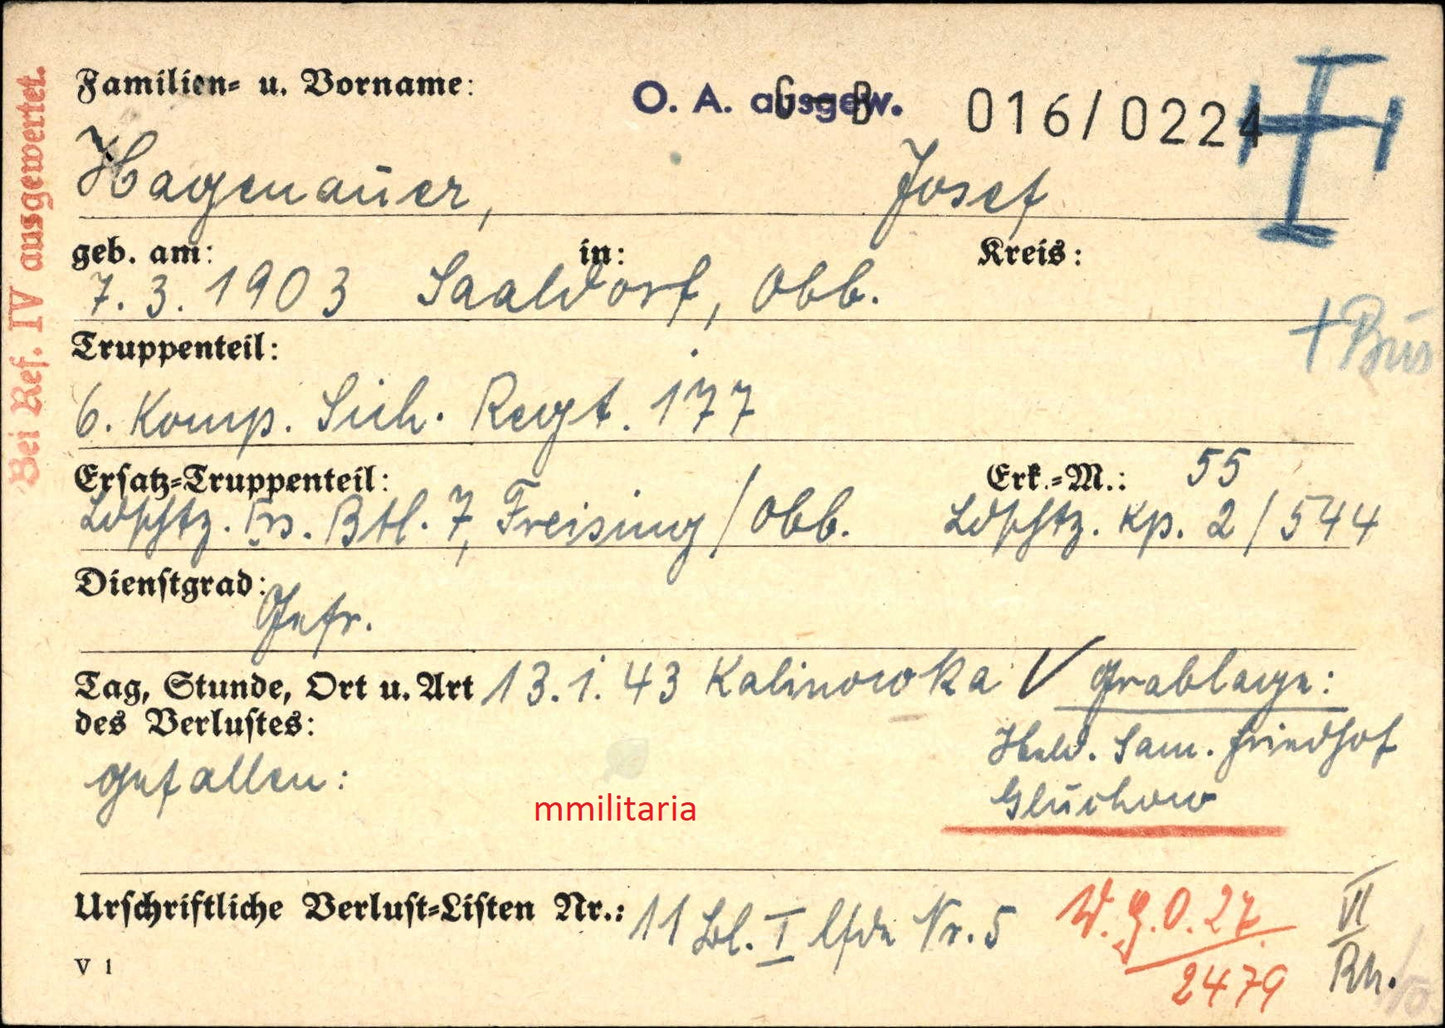 Bei Ref. IV ausgewertet.
Familien- u. Vorname:
O. A. ausgew.
G - B
016/0224
Hagenauer, Josef
geb. am: in: Kreis:
7. 3. 1903 Saaldorf, Obb.
Truppenteil:
6. Komp. Sich. Regt. 177
Ersatz-Truppenteil: Erk.-M.: 55
Ldsschtz. Ers. Btl. 7, Freising / Obb. Ldsschtz. Kp. 2/544
Dienstgrad:
Gefr.
Tag, Stunde, Ort u. Art 13. 1. 43 Kalinowka Grablage:
des Verlustes:
Held. Sam. Friedhof
gefallen: Gluchow
mmilitaria
Urschriftliche Verlust-Listen Nr.: 11 Bl. I lfde Nr. 5
W.G.O. 27
2479
VI
Rh.
V 1